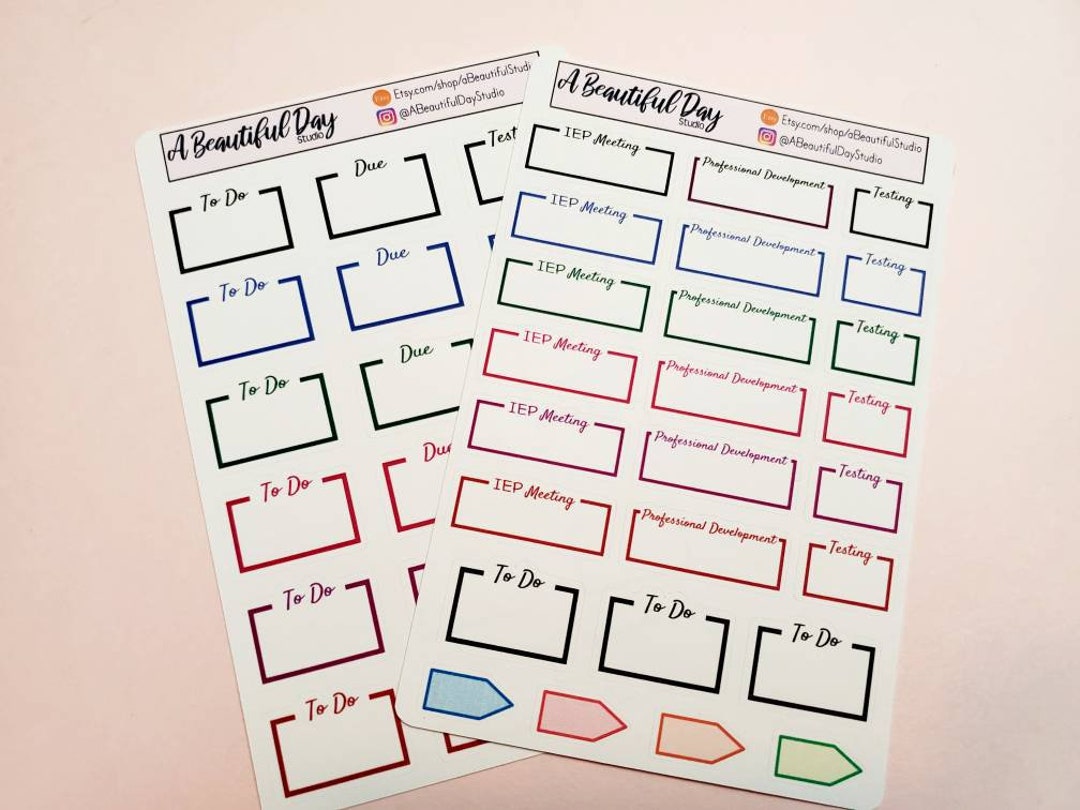 A Beautiful Day
Studio
Etsy.com/shop/aBeautifulStudi
@ABeautifulDayStudio
To Do
Due
Test
To Do
Due
To Do
Due
To Do
Due
To Do
To Do
A Beautiful Day
Studio
Etsy
Etsy.com/shop/aBeautifulStudio
@ABeautifulDayStudio
IEP Meeting
Professional Development
Testing
IEP Meeting
Professional Development
Testing
IEP Meeting
Professional Development
Testing
IEP Meeting
Professional Development
Testing
IEP Meeting
Professional Development
Testing
IEP Meeting
Professional Development
Testing
To Do
To Do
To Do